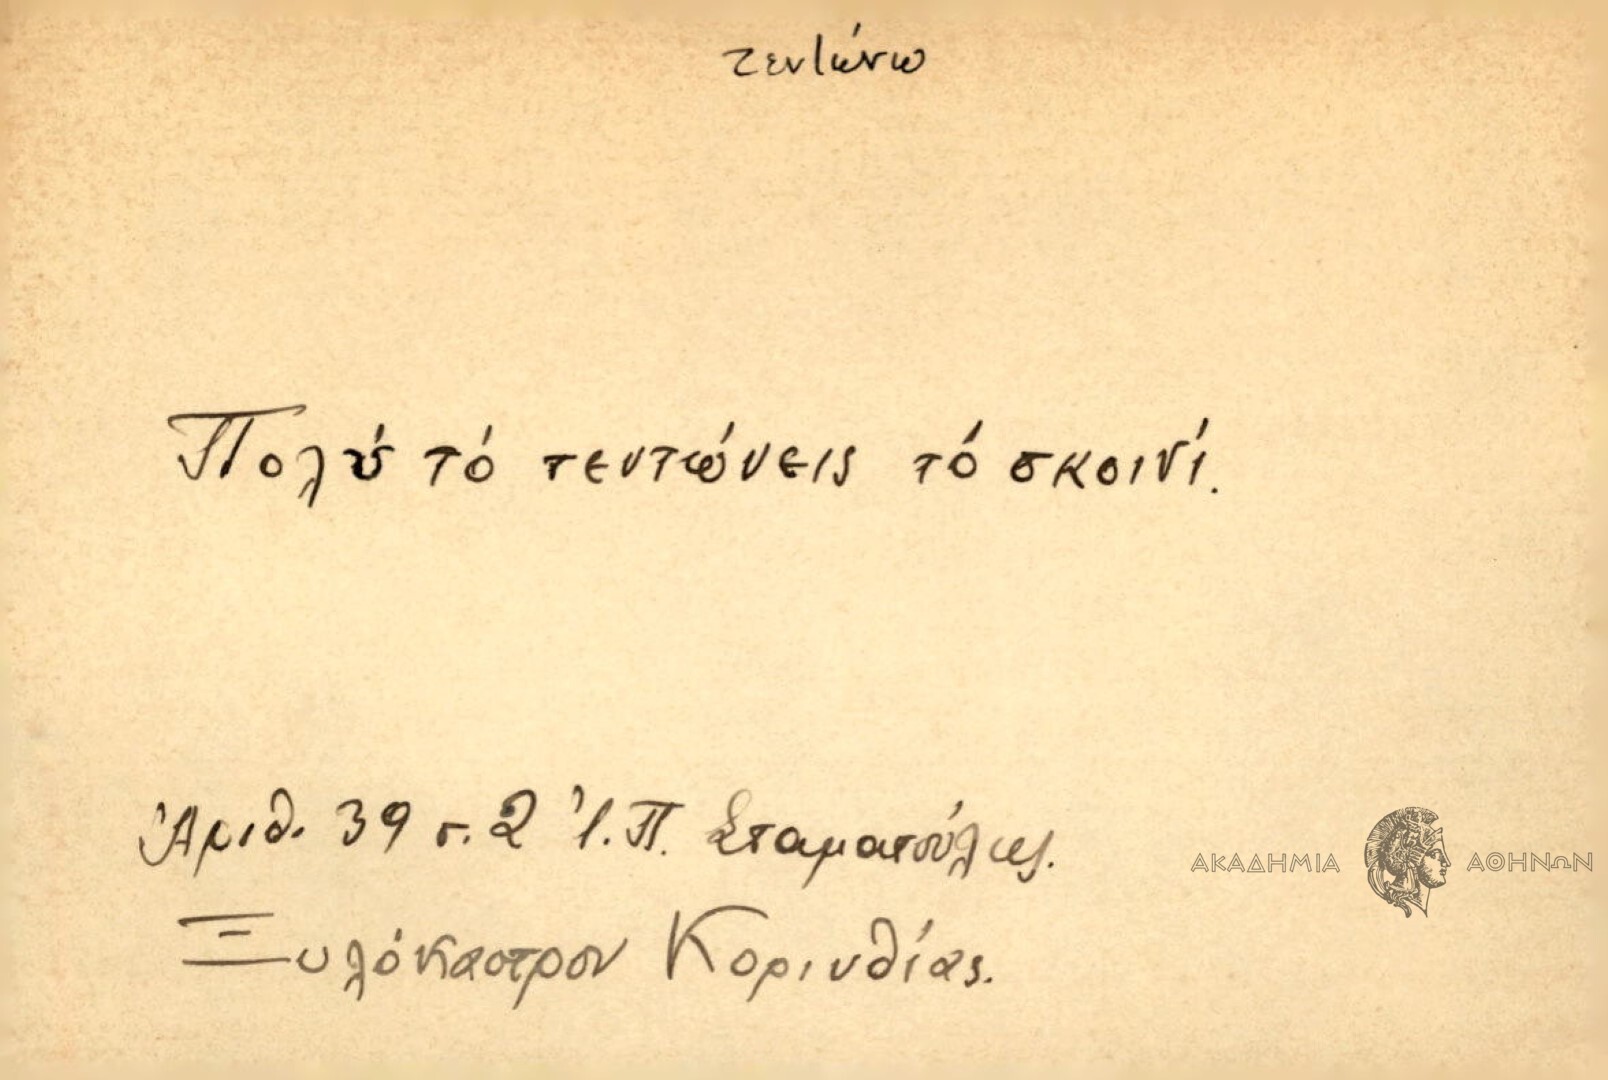 τεντώνω
Πολύ τό τεντώνεις τό σκοινί.
Ἀριθ. 39 σ. 2 Ἰ. Π. Σταματούλης.
Ξυλόκαστρον Κορινθίας.
ΑΚΑΔΗΜΙΑ ΑΘΗΝΩΝ